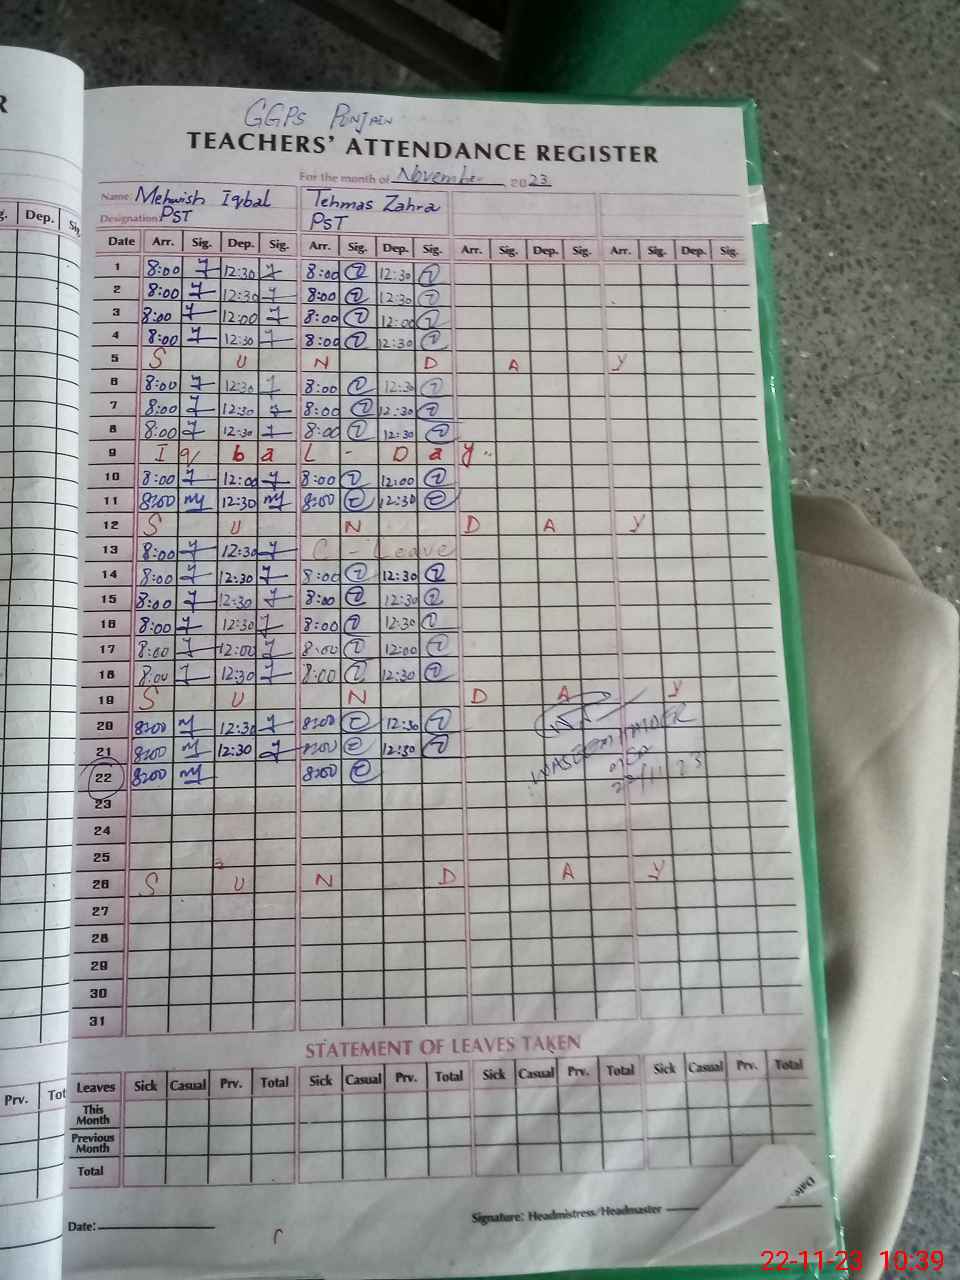 R
GGPS Punjain
TEACHERS' ATTENDANCE REGISTER
For the month of November 2023
Name: Mehwish Iqbal Tehmas Zahra
Designation: PST PST
g. Dep. Sig
Date Arr. Sig. Dep. Sig. Arr. Sig. Dep. Sig. Arr. Sig. Dep. Sig. Arr. Sig. Dep. Sig.
1 8:00 12:30 8:00 12:30
2 8:00 12:30 8:00 12:30
3 8:00 12:00 8:00 12:00
4 8:00 12:30 8:00 12:30
5 S U N D A Y
6 8:00 12:30 8:00 12:30
7 8:00 12:30 8:00 12:30
8 8:00 12:30 8:00 12:30
9 I q b a L - D a y
10 8:00 12:00 8:00 12:00
11 8:00 12:30 8:00 12:30
12 S U N D A Y
13 8:00 12:30 C - Leave
14 8:00 12:30 8:00 12:30
15 8:00 12:30 8:00 12:30
16 8:00 12:30 8:00 12:30
17 8:00 12:00 8:00 12:00
18 8:00 12:30 8:00 12:30
19 S U N D A Y
20 8:00 12:30 8:00 12:30
21 8:00 12:30 8:00 12:30
22 8:00 8:00
WASEEM HAIDER
22/11/23
23
24
25
26 S U N D A Y
27
28
29
30
31
STATEMENT OF LEAVES TAKEN
Prv. Tot
Leaves Sick Casual Prv. Total Sick Casual Prv. Total Sick Casual Prv. Total Sick Casual Prv. Total
This Month
Previous Month
Total
Date: Signature: Headmistress/Headmaster
Date
22-11-23 10:39